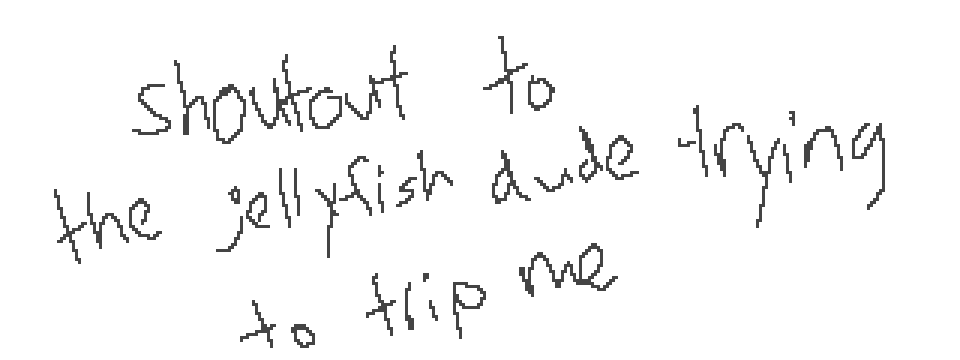 shoutout to
the jellyfish dude trying
to trip me